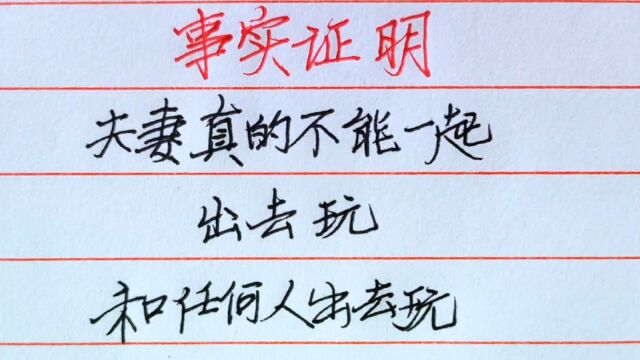 事实证明
夫妻真的不能一起
出去玩
和任何人出去玩